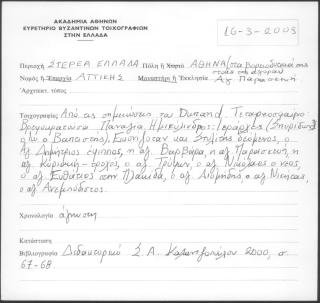 ΑΚΑΔΗΜΙΑ ΑΘΗΝΩΝ
ΕΥΡΕΤΗΡΙΟ ΒΥΖΑΝΤΙΝΩΝ ΤΟΙΧΟΓΡΑΦΙΩΝ
ΣΤΗΝ ΕΛΛΑΔΑ
16-3-2003
Περιοχή ΣΤΕΡΕΑ ΕΛΛΑΔΑ Πόλη ή Χωριό ΑΘΗΝΑ (στα βορειοδυτικά της
στοάς της αγοράς)
Νομός ή Επαρχία ΑΤΤΙΚΗΣ Μοναστήρι ή Ἐκκλησία Αγ. Παρασκευή
Ἀρχιτεκ. τύπος
Τοιχογραφίες Από τις σημειώσεις του Durand. Τεταρτοσφαίριο
Βρεφοκρατούσα Παναγία Ημικύλινδρος: ιεράρχες (Σπυρίδων
ή Βαπτιστής). Ενώπιον και στηθαίος δεόμενος, ο
αγ. Δημήτριος έφιππος, η αγ. Βαρβάρα, η αγ. Παρασκευή, η
αγ. Κυριακή, ο αγ. Τρύφων, ο αγ. Νικόλαος ο νέος,
ο αγ. Ευθύμιος, ο αγ. Διομήδης, ο αγ. Νικήτας,
ο αγ. Ανεμπόδιστος.
Χρονολογία άγνωστη
Κατάσταση
Βιβλιογραφία Διδακτορικό Σ. Α. Καλαντζοπούλου 2000, σ.
67-68.